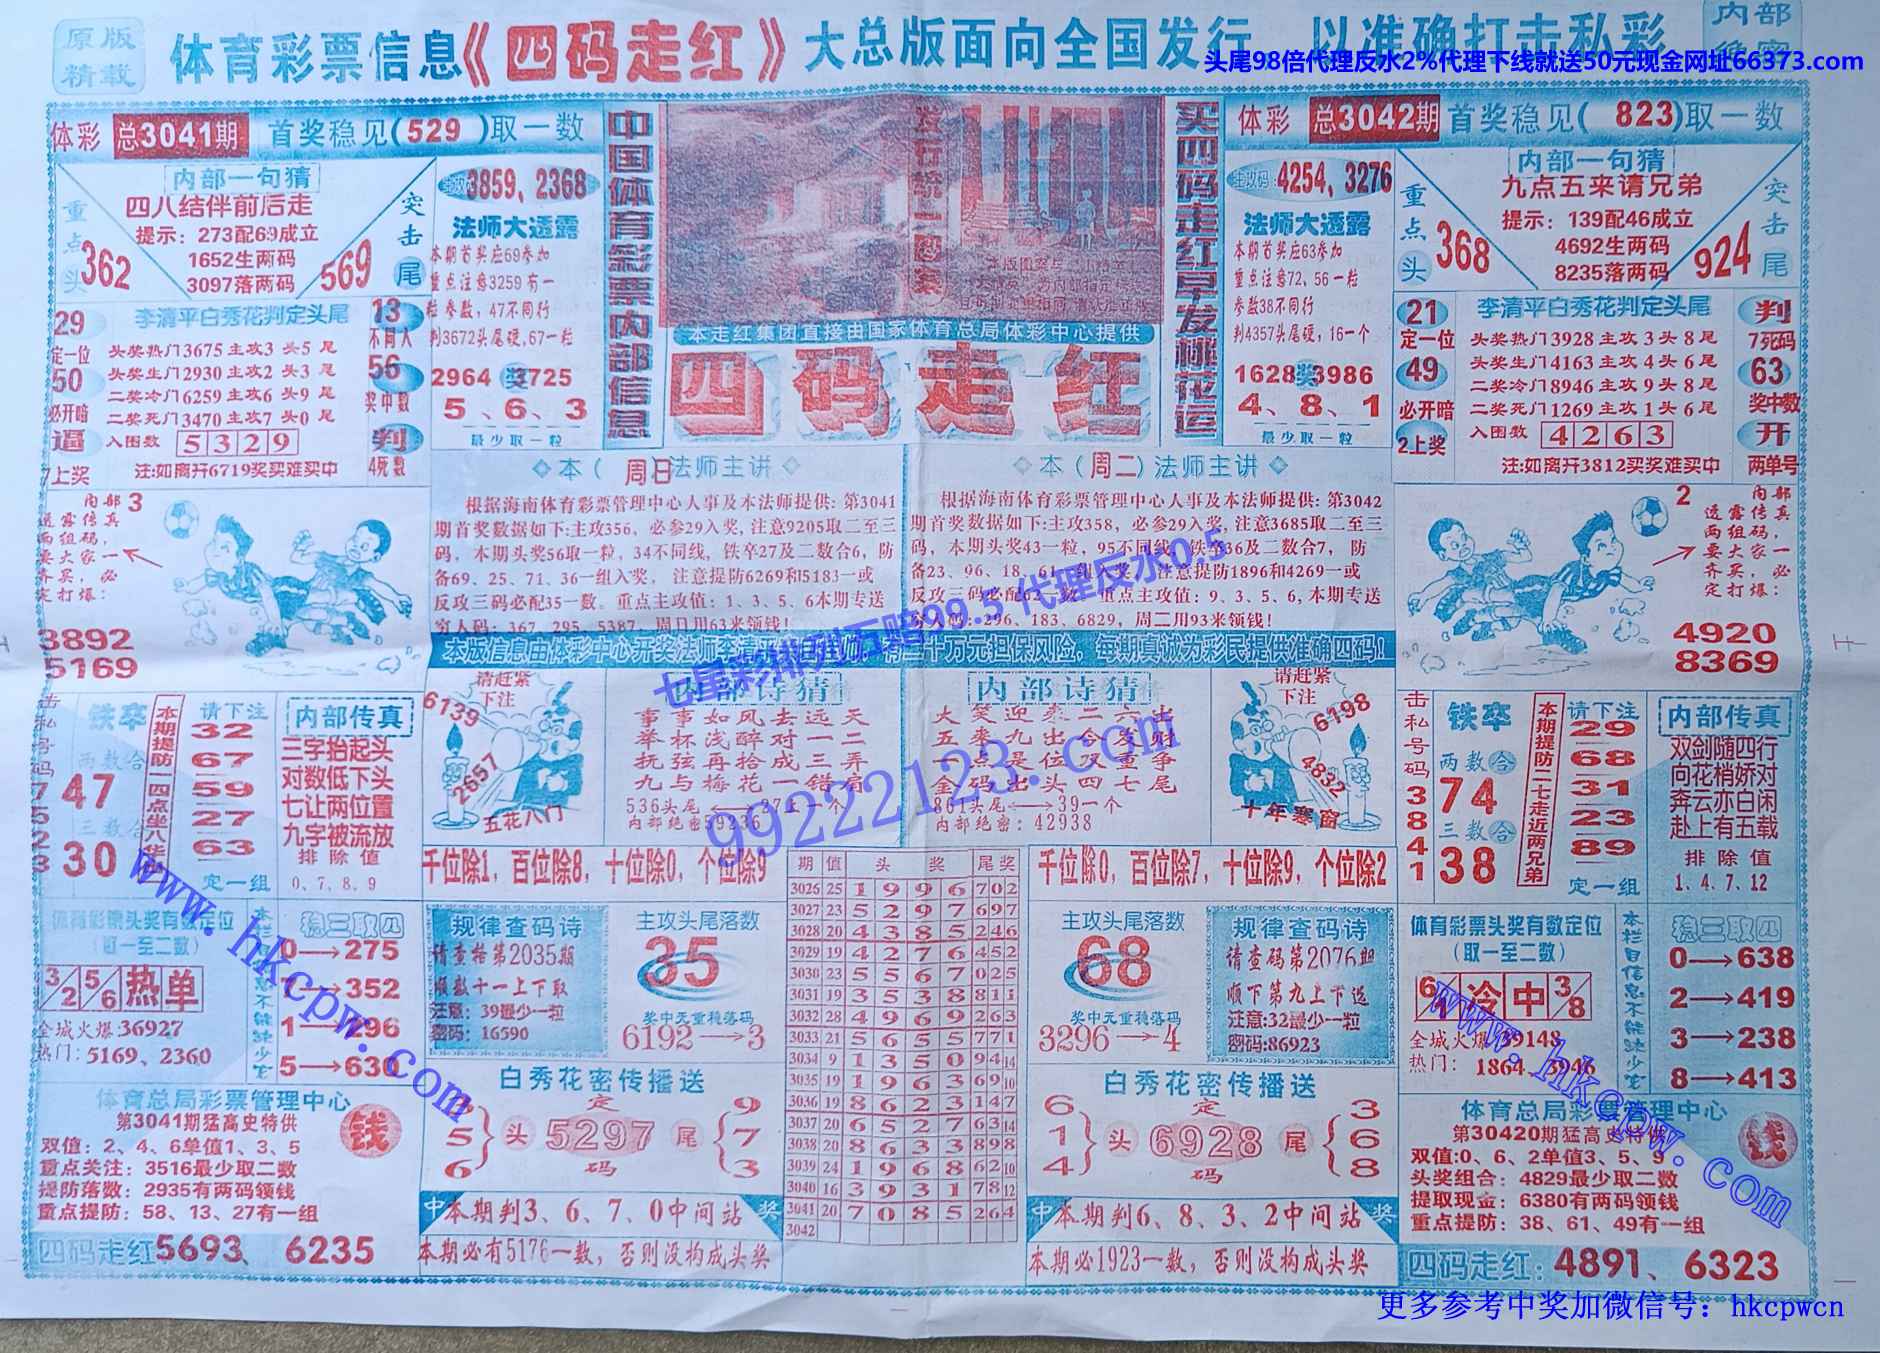 原版
精载
体育彩票信息《四码走红》大总版面向全国发行 以准确打击私彩
内部
头尾98倍代理反水2%代理下线就送50元现金网址66373.com
体彩 总3041期 首奖稳见(529)取一数
内部一句猜
四八结伴前后走
提示：273配69成立
1652生两码
3097落两码
重点头
362
突击尾
569
主攻码 3859, 2368
法师大透露
本期首奖应69参加
重点注意3259有一
粒参数，47不同行
判3672头尾硬,67一粒
2964 奖 3725
5、6、3
最少取一粒
29
定一位
50
必开暗
逼
7上奖
李清平白秀花判定头尾
头奖热门3675主攻3头5尾
头奖生门2930主攻2头3尾
二奖冷门6259主攻6头9尾
二奖死门3470主攻7头0尾
入围数 5329
注:如离开6719奖买难买中
13
不同入
56
奖中数
判
4死数
中国体育彩票内部信息
发行统一图案
本走红集团直接由国家体育总局体彩中心提供
四码走红
买四码走红早发桃花运
体彩 总3042期 首奖稳见(823)取一数
主攻码: 4254, 3276
法师大透露
本期首奖应63参加
重点注意72、56一粒
参数38不同行
判4357头尾硬,16一个
1628 奖 3986
4、8、1
最少取一粒
内部一句猜
九点五来请兄弟
提示：139配46成立
4692生两码
8235落两码
重点头
368
突击尾
924
21
定一位
49
必开暗
2上奖
李清平白秀花判定头尾
头奖热门3928主攻3头8尾
头奖生门4163主攻4头6尾
二奖冷门8946主攻9头8尾
二奖死门1269主攻1头6尾
入围数 4263
注:如离开3812买奖难买中
判
7死码
63
奖中数
开
两单号
内部3
透露传真
两组码，
要大家一
齐买，必
定打爆：
3892
5169
本（周日）法师主讲
根据海南体育彩票管理中心人事及本法师提供: 第3041
期首奖数据如下:主攻356，必参29入奖, 注意9205取二至三
码，本期头奖56取一粒，34不同线, 铁卒27及二数合6，防
备69、25、71、36一组入奖， 注意提防6269和5183一或
反攻三码必配35一数。重点主攻值：1、3、5、6本期专送
穷人码：367、295、5387，周日用63来领钱！
本（周二）法师主讲
根据海南体育彩票管理中心人事及本法师提供: 第3042
期首奖数据如下:主攻358，必参29入奖, 注意3685取二至三
码，本期头奖43一粒，95不同线，铁卒36及二数合7， 防
备23、96、18、61一组入奖， 注意提防1896和4269一或
反攻三码必配62一数，重点主攻值：9、3、5、6, 本期专送
296、183、6829，周二用93来领钱！
2 内部
透露传真
两组码，
要大家一
齐买，必
定打爆：
4920
8369
七星彩排列五赔99.5 代理反水0.5
99222123.com
击私号码 7 5 2 3
铁卒
两数合
47
三数合
30
本期提防一四点坐八华
请下注
32
67
59
27
63
定一组
内部传真
三字抬起头
对数低下头
七让两位置
九字被流放
排除值
0、7、8、9
请赶紧
下注
6139
2657
五花八门
内部诗猜
事事如风去远天
举杯浅醉对一二
抚弦再拾成三弄
九与梅花一错肩
536头尾⟷27上一个
内部绝密59236
内部诗猜
大笑迎来二六出
五来九出今发财
一点是位双重争
金码出头四七尾
861头尾⟷39一个
内部绝密：42938
请赶紧
下注
6198
4832
十年寒窗
击私号码 3 8 4 1
铁卒
两数合
74
三数合
38
本期提防二七走近两兄弟
请下注
29
68
31
23
89
定一组
内部传真
双剑随四行
向花梢娇对
奔云亦白闲
赴上有五载
排除值
1、4、7、12
千位除1，百位除8，十位除0，个位除9
千位除0，百位除7，十位除9，个位除2
体育彩票头奖有数定位
(取一至二数)
3/2 5/6 热单
全城火爆:36927
热门：5169、2360
稳三取四
0→275
1→352
1→296
5→630
规律查码诗
请查括第2035期
顺数十一上下取
注意：39最少一粒
密码：16590
主攻头尾落数
35
奖中无重稳落码
6192→3
期 值 头奖 尾奖
3026 25 1996 702
3027 23 5297 697
3028 20 4385 246
3029 19 4276 452
3030 23 5567 025
3031 19 3538 811
3032 28 4969 263
3033 21 5655 771
3034 9 1350 94 14
3035 19 1963 69 10
3036 19 8623 147
3037 20 6527 63 14
3038 20 8633 898
3039 24 1968 62 10
3040 16 3931 78 12
3041 20 7085 264
3042
主攻头尾落数
68
奖中无重稳落码
3296→4
规律查码诗
请查码第2076期
顺下第九上下送
注意:32最少一粒
密码:86923
体育彩票头奖有数定位
(取一至二数)
冷中 3/8
全城火爆:39148
热门： 1864、3946
本栏目信息不能缺少它
稳三取四
0→638
2→419
3→238
8→413
体育总局彩票管理中心
第3041期猛高史特供
双值：2、4、6单值1、3、5
重点关注：3516最少取二数
提防落数：2935有两码领钱
重点提防：58、13、27有一组
钱
四码走红5693、6235
白秀花密传播送
5
6
头 定 5297 码 尾
9
7
3
中 本期判3、6、7、0中间站 奖
本期必有5176一数，否则没构成头奖
白秀花密传播送
6
1
4
头 定 6928 码 尾
3
6
8
中 本期判6、8、3、2中间站 奖
本期必1923一数，否则没构成头奖
体育总局彩票管理中心
第30420期猛高史特供
双值:0、6、2单值3、5、9
头奖组合：4829最少取二数
提取现金：6380有两码领钱
重点提防：38、61、49有一组
钱
四码走红：4891、6323
www.hkcpw.com
www.hkcpw.com
更多参考中奖加微信号：hkcpwcn